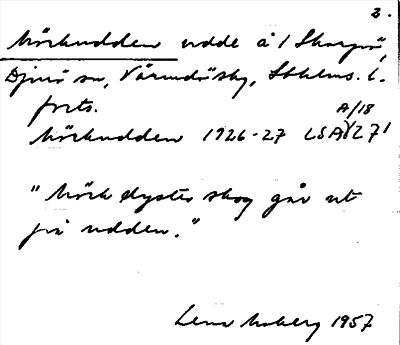 2.
Mörkudden udde å / Skarpö,
Djurö sn, Värmdö skg, Sthlms. l.
forts.
A/18
Mörkudden 1926-27 LSA 271
"Mörk dyster skog går ut
på udden."
Lena Moberg 1957